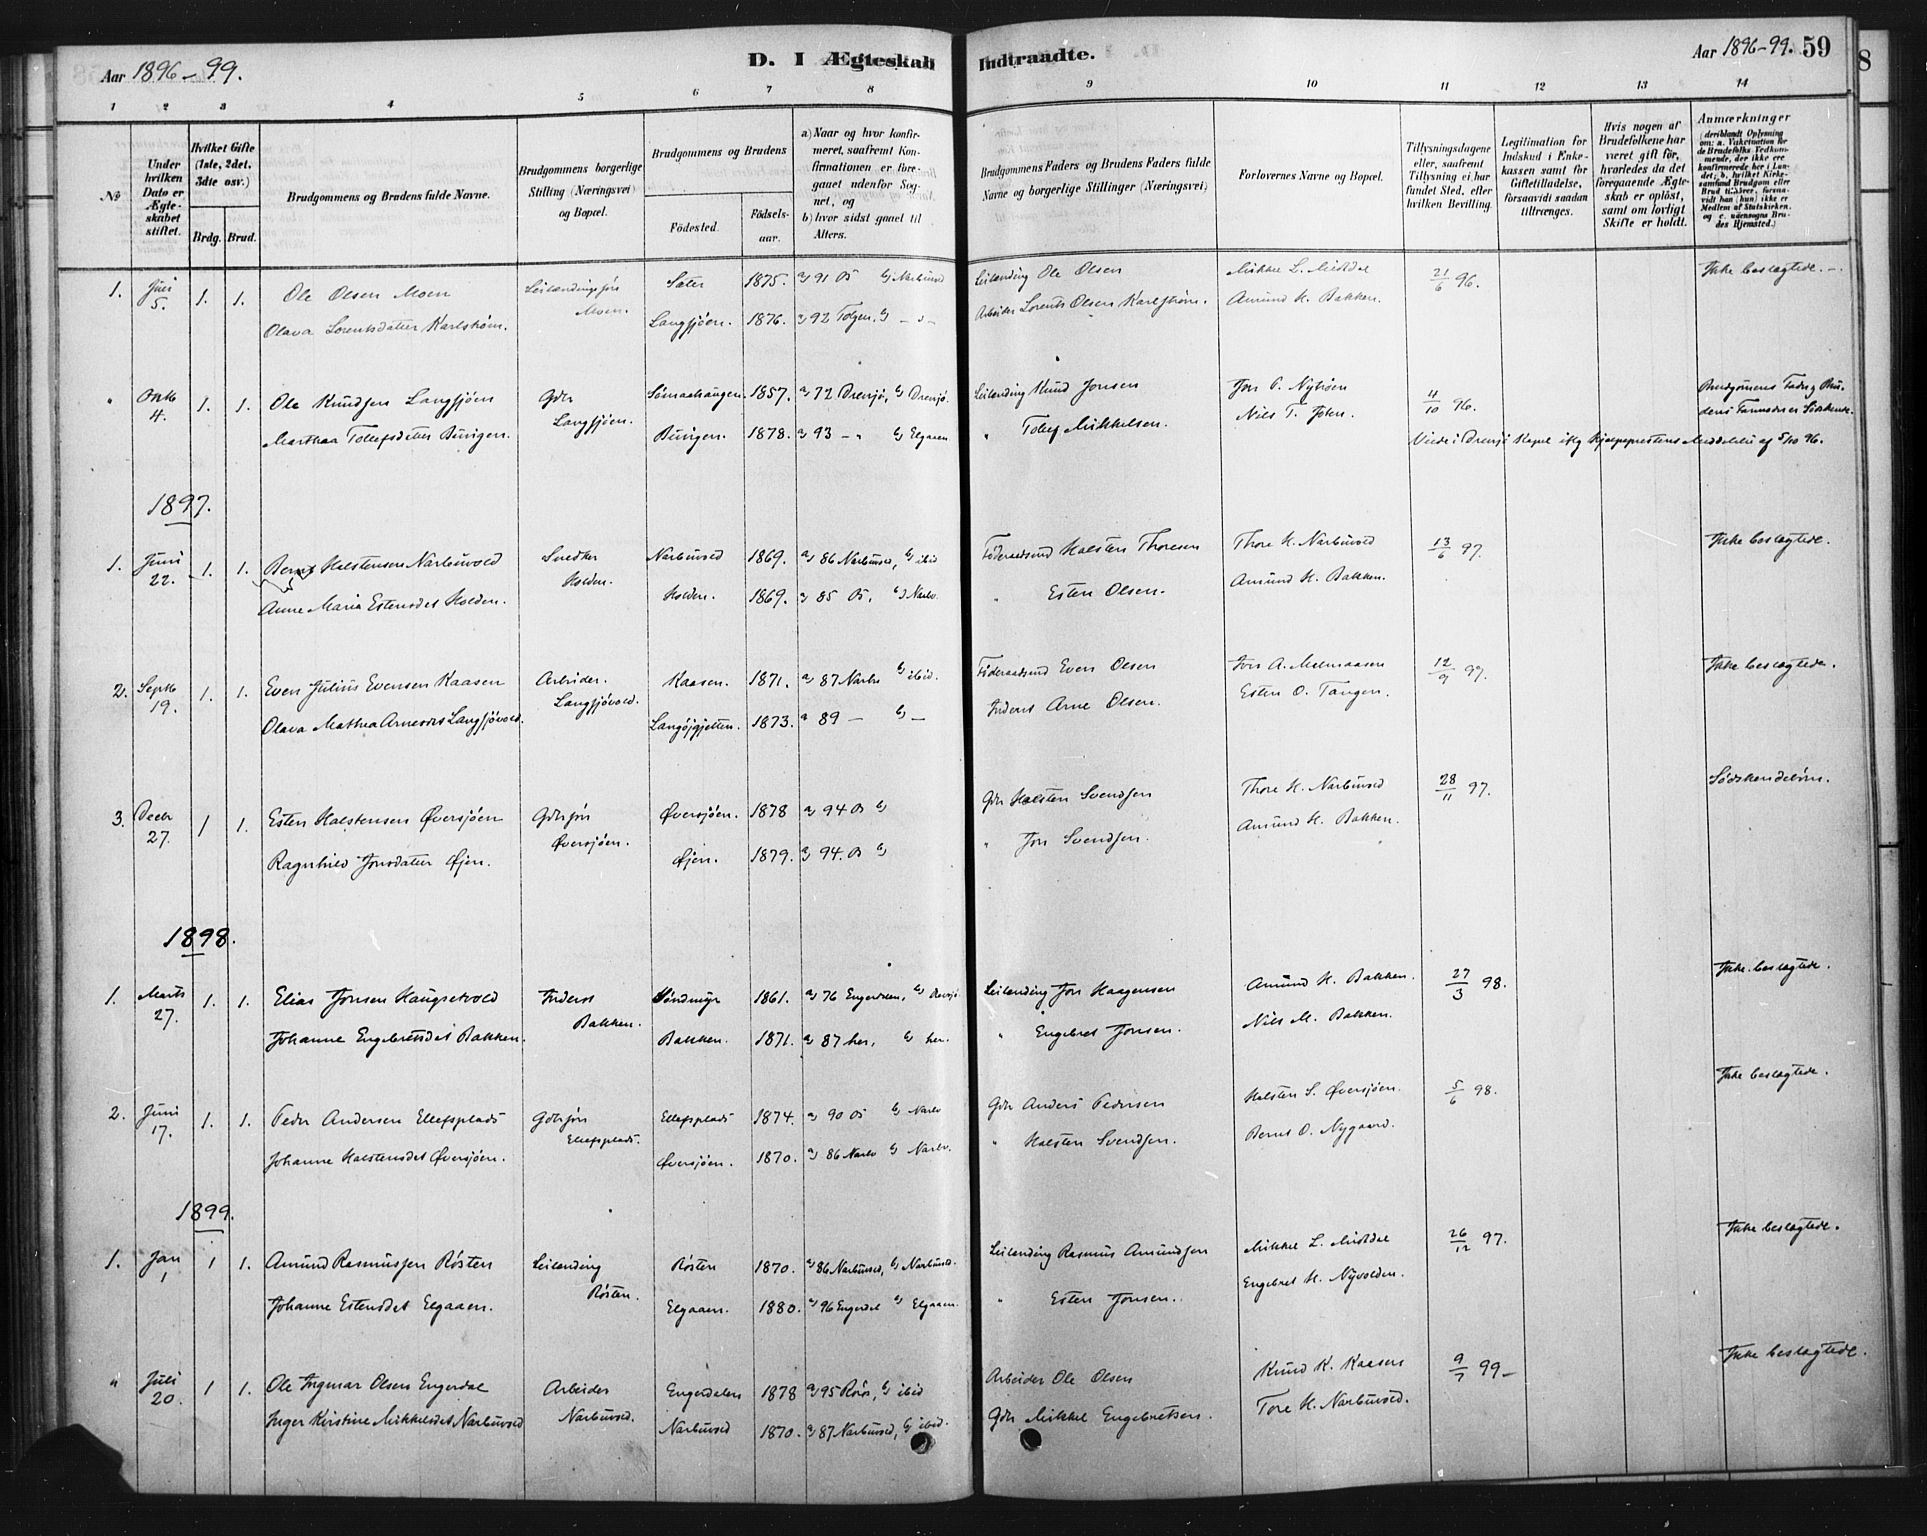 Aar 1896-99.
D. I Ægteskab
Indtraadte.
Aar 1896-99. 59
8
1 2 3 4 5 6 7 8
9 10 11 12 13 14
№
Under hvilken Dato er Ægteskabet stiftet.
Hvilket Gifte (1ste, 2det, 3die osv.)
Brdg. Brud.
Brudgommens og Brudens fulde Navne.
Brudgommens borgerlige Stilling (Næringsvei) og Bopæl.
Brudgommens og Brudens
Födested. Födsels-aar.
a) Naar og hvor konfirmeret, saafremt Konfirmationen er foregaaet udenfor Sognet, og
b) hvor sidst gaaet til Alters.
Brudgommens Faders og Brudens Faders fulde Navne og borgerlige Stillinger (Næringsvei)
Forlovernes Navne og Bopæl.
Tillysningsdagene eller, saafremt Tillysning ei har fundet Sted, efter hvilken Bevilling.
Legitimation for Indskud i Enkekassen samt for Giftetilladelse, forsaavidt saadan tiltrænges.
Hvis nogen af Brudefolkene har været gift för, hvorledes da det foregaaende Ægteskab er oplöst, samt om lovligt Skifte er holdt.
Anmærkninger
1. Juli 5. 1. 1. Ole Olsen Moen Leilændingssøn Moen. Sater 1875. a) 91 Os b) Narbuvod Leilænding Ole Olsen Mikkel L. Midtdal 21/6 96. Ikke beslægtede.
Olava Lorentsdatter Karlstrøm. Langsjöen. 1876. a) 92 Tolgen. b) - Arbeider Lorents Olsen Karlstrøm. Amund H. Bakken.
" Oktb 4. 1. 1. Ole Knudsen Langsjöen Gdbr Langsjöen. 1857. a) 72 Drevsjø, b) Drevsjø. Leilænding Knud Jonsen Jon P. Nyhøen 4/10 96. Brudgommens Fader og Brudens Farmoder er Södskende.
Marthea Tollefsdatter Burigen. Burigen. 1878. a) 93 - " b) Elgaaen " Tollef Mikkelsen. Nils T.
Viede i Drevsjø Kapel iflg Hjælpeprestens Meddelelse af 5/10 96.
1897.
1. Juni 22. 1. 1. Bernt Halstensen Narbuvold Snedker Holden. Narbuvod 1869. a) 86 Narbuvod, b) ibid Föderaadsmd Halsten Thoresen Thore H. Narbuvod 13/6 97. Ikke beslægtede.
Anne Maria Estensdtr Holden. Holden. 1869. a) 85 Os, b) Narbv. " Esten Olsen. Amund H. Bakken.
2. Septb 19. 1. 1. Even Julius Evensen Kaasen Arbeider. Langsjövold. Kaasen. 1871. a) 87 Narbv b) ibid. Föderaadsmd Even Olsen Jon A. Melmaasen 12/9 97. Ikke beslægtede.
Olava Mathea Arnesdtr Langsjövold. 1873. a) 89 - b) - Inderst Arne Olsen. Esten O. Tangen.
3. Decbr 27. 1 1. Esten Halstensen Øversjöen Gdbrsøn Øversjöen. Øversjöen. 1878 a) 94 Os b) Gdbr Halsten Svendsen Thore H. Narbuvod 28/11 97. Södskendebörn.
Ragnhild Jonsdatter Øjen. Øjen. 1879. a) 94. Os b) " Jon Svendsen. Amund H. Bakken.
1898.
1. Marts 27. 1. 1. Elias Jonsen Haugsetvold Inderst Bakken. 1861. a) 76 Engerdalen, b) Drevsjø Leilænding Jon Haagensen Amund H. Bakken. 27/3 98. Ikke beslægtede.
Johanne Engebretsdtr Bakken. Bakken. 1871. a) 87 her, b) her. " Engebret Jonsen. Nils M. Bakken.
2. Juni 17. 1. 1. Peder Andersen Ellefsplads Gdbrsøn Ellefsplads. Ellefsplads 1874. a) 90 Os b) Narbv Gdbr Anders Pedersen Halsten S. Øversjöen. 5/6 98. Ikke beslægtede.
Johanne Halstensdtr Øversjöen. Øversjöen. 1870. a) 86 Narbv b) Narbv. " Halsten Svendsen. Bernt O. Nygaard.
1899.
1. Jan 1 1 1. Amund Rasmussen Røsten Leilænding Røsten. Røsten 1870. a) 86 Narbuvod, b) Narbuvod. Leilænding Rasmus Amundsen Mikkel L. Midtdal 26/12 97. Ikke beslægtede.
Johanne Estensdtr Elgaaen. Elgaaen. 1880. a) 96 Engerdal b) Elgaaen. " Esten Jonsen. Engebret H. Nyvolden.
" Juli 20. 1 1. Ole Ingmar Olsen Engerdal Arbeider Narbuvod. Engerdalen 1878 a) 95 Röros, b) ibid Arbeider Ole Olsen Knud K. Kaasen 9/7 99- Ikke beslægtede.
Inger Kirstine Mikkelsdtr Narbuvod Narbuvod 1870. a) 87 Narbuvod, b) ibid. Gdbr Mikkel Engebretsen. Tore H. Narbuvod.